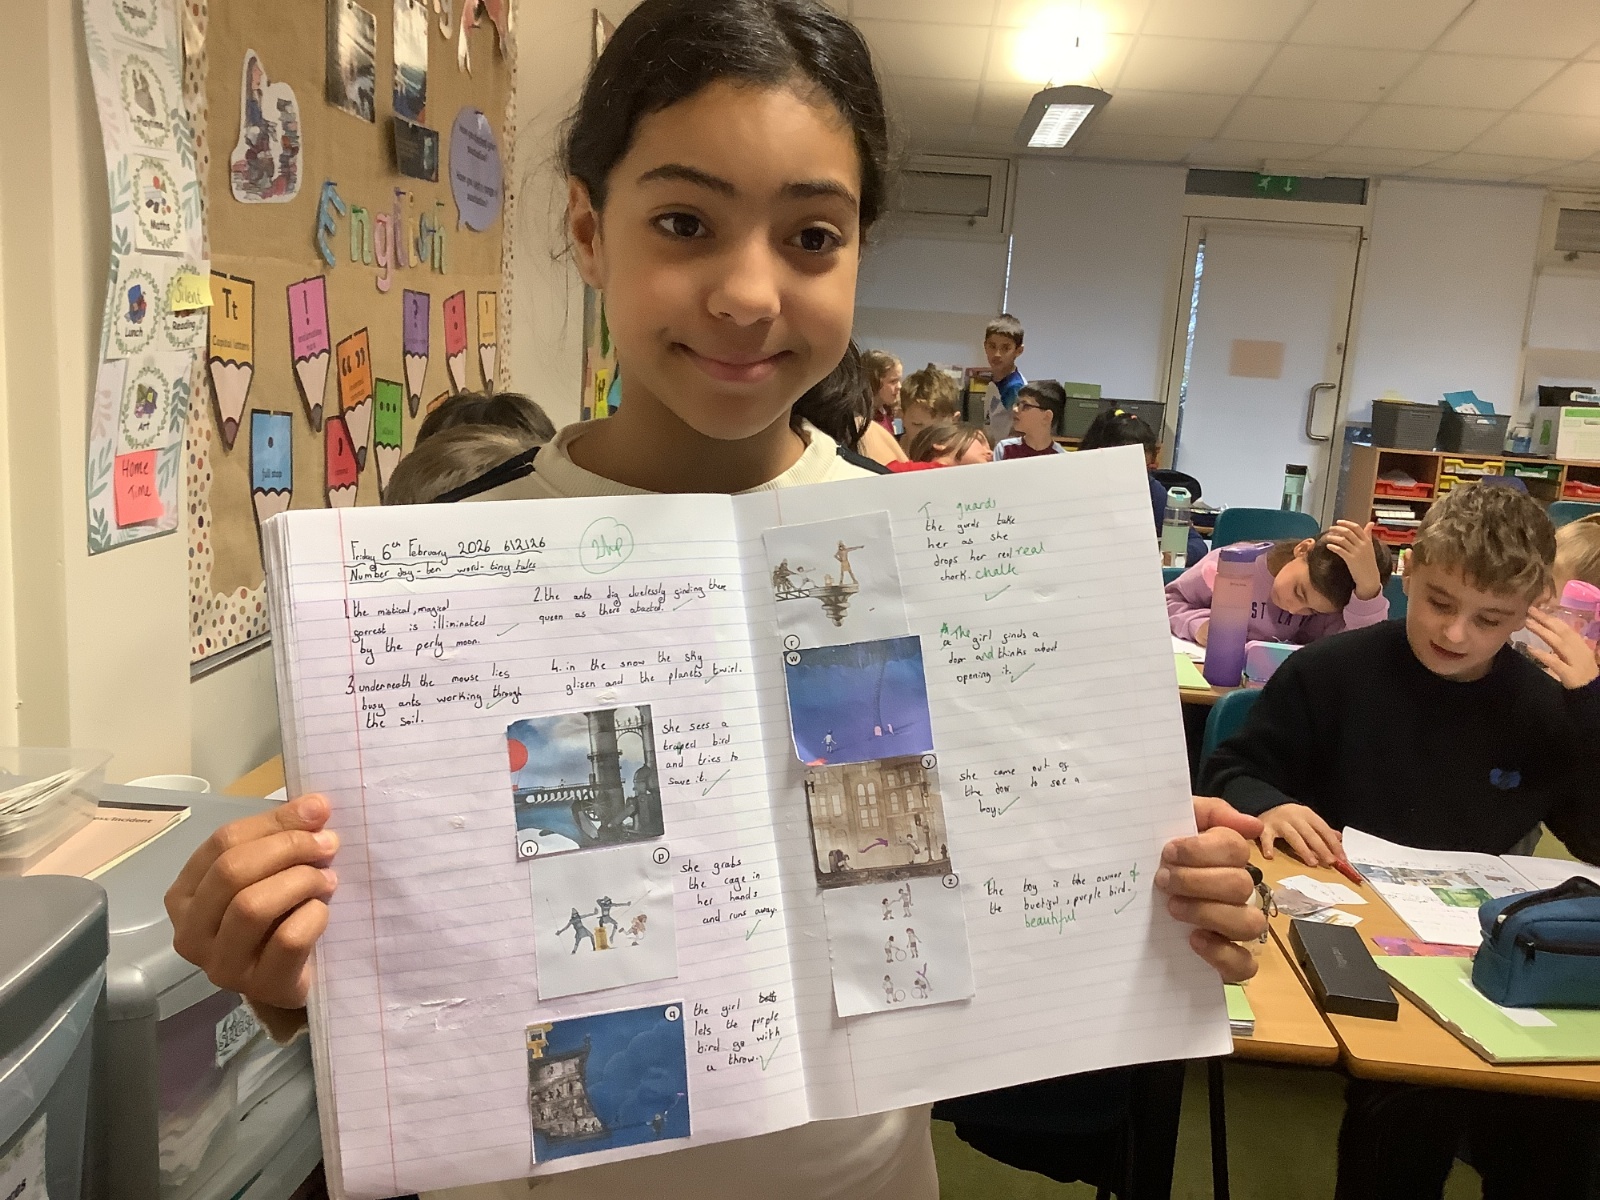 English
Playtime
Maths
Lunch
Silent
Reading
Art
Home
Time
English
Tt
Capital letters
!
?
full stop
Friday 6th February 2026 6/2/26
Number day - ten word - tiny tales
1. the mistical, magical
gorrest is illiminated
by the perly moon.
2. the ants dig duelessly ginding there
queen as there atacted.
3. underneath the mouse lies
busy ants working through
the soil.
4. in the snow the sky
glisen and the planets twirl.
she sees a
trapped bird
and tries to
save it.
n
p
she grabs
the cage in
her hands
and runs away.
q
the girl
lets the purple
bird go with
a throw.
T guards
the gurds take
her as she
drops her real real
chork. chalk
r
w
A The
a girl ginds a
door and thinks about
opening it.
y
she came out of
the door to see a
boy.
z
the boy is the owner of
the buetiful, purple bird.
beautiful